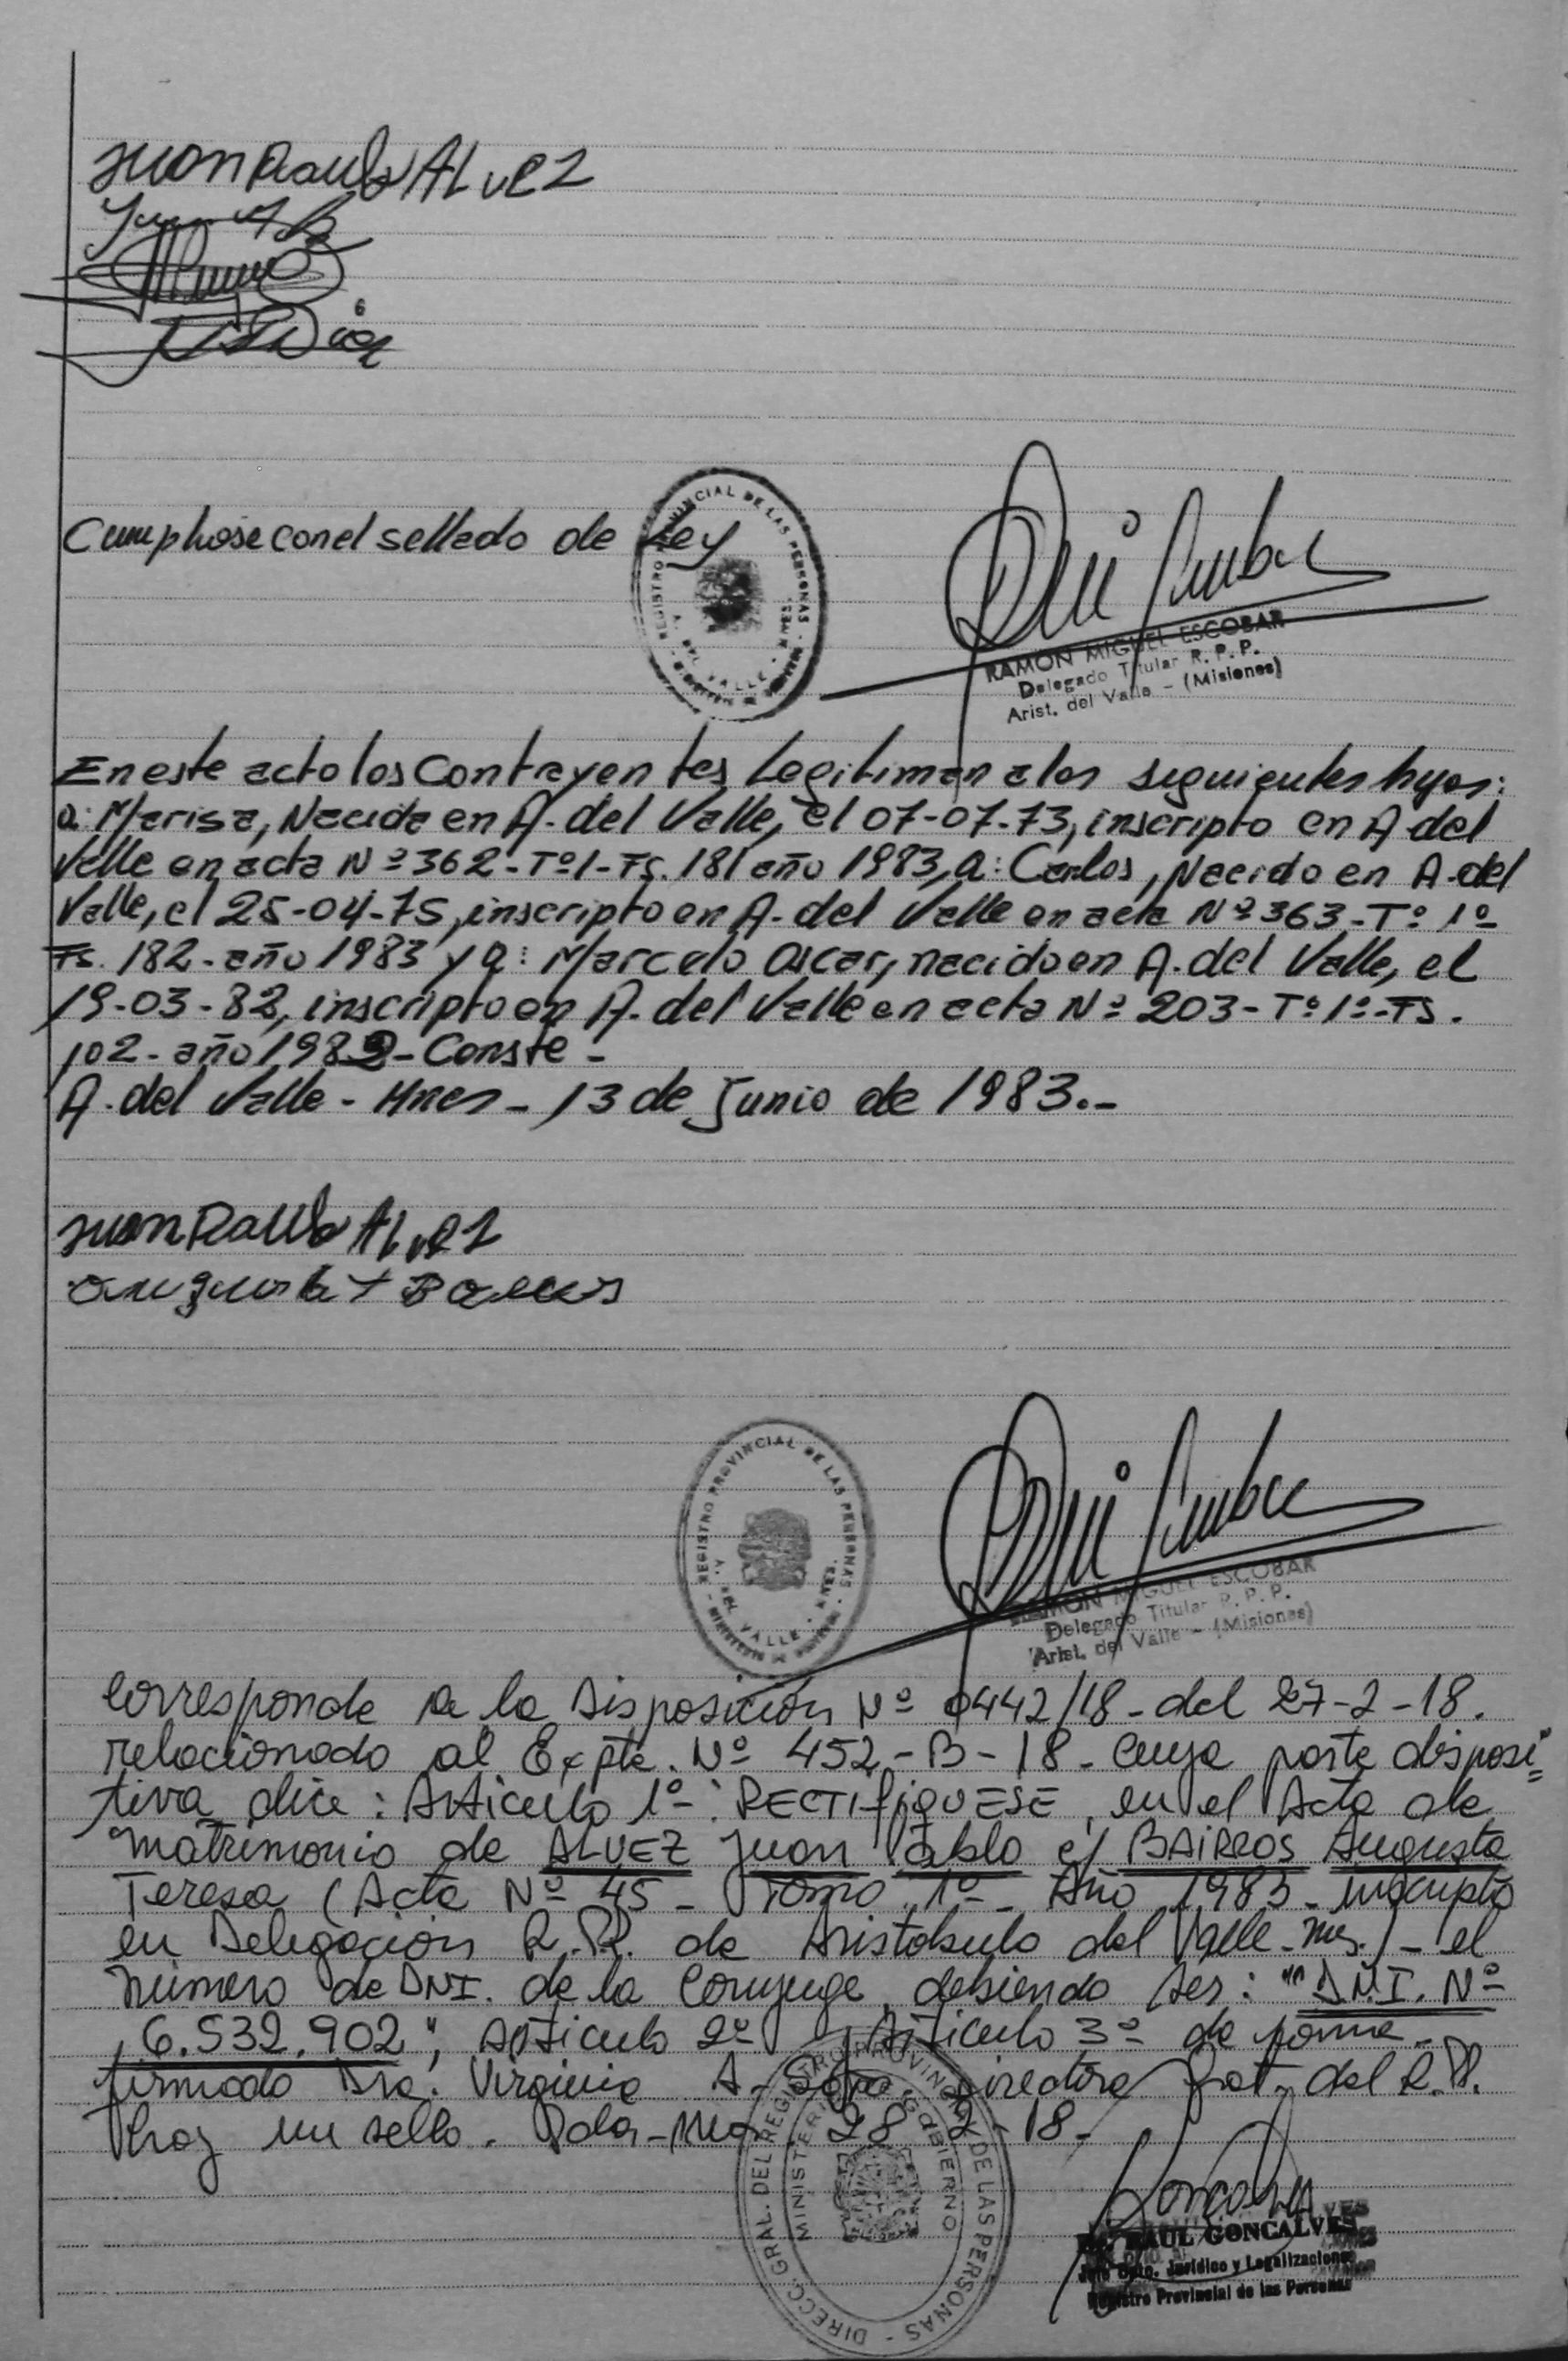 Juan Paulo ALvez
Cumplios con el sellado de Ley
REGISTRO PROVINCIAL DE LAS PERSONAS
A. DEL VALLE - MNES.
RAMON MIGUEL ESCOBAR
Delegado Titular R. P. P.
Arist. del Valle - (Misiones)
En este acto los Contrayentes Legitiman a los siguientes hijos:
a: Marisa, Nacida en A. del Valle, el 07-07-73, inscripto en A del
Valle en acta Nº 362-Tº1-Fs. 181 año 1983, a: Carlos, Nacido en A. del
Valle, el 25-04-75, inscripto en A. del Valle en acta Nº 363-Tº 1º
Fs. 182-año 1983 y a: Marcelo Oscar, nacido en A. del Valle, el
19-03-82, inscripto en A. del Valle en acta Nº 203-Tº 1º-Fs.
102-año 1982-Conste-
A. del Valle-Mnes-13 de Junio de 1983.-
Juan Paulo ALvez
REGISTRO PROVINCIAL DE LAS PERSONAS
DEL VALLE - MNES.
RAMON MIGUEL ESCOBAR
Delegado Titular R. P. P.
Arist. del Valle - (Misiones)
Corresponde a la Disposición Nº 0442/18-del 27-2-18.
relacionado al Expte. Nº 452-B-18-Cuya parte disposi=
tiva dice: Articulo 1º: RECTIFIQUESE, en el Acta de
matrimonio de ALVEZ Juan Pablo c/ BAIRROS Augusta
Teresa (Acta Nº 45-Tomo 1º-Año 1983-inscripto
en Delegación R.P.P. de Aristobulo del Valle-Mnes.)-el
número de DNI. de la Conyuge, debiendo ser: "D.N.I. Nº
6.532.902", Articulo 2º y Articulo 3º de forma.
firmado Dra. Virginia A. Directora Gral. del R.P.P.
hay un sello. Pdas-Mnes. 28-2-18-
DIRECC. GRAL. DEL REGISTRO PROVINCIAL DE LAS PERSONAS
MINISTERIO DE GOBIERNO
RAUL GONCALVES
Jefe Dpto. Jurídico y Legalizaciones
Registro Provincial de las Personas